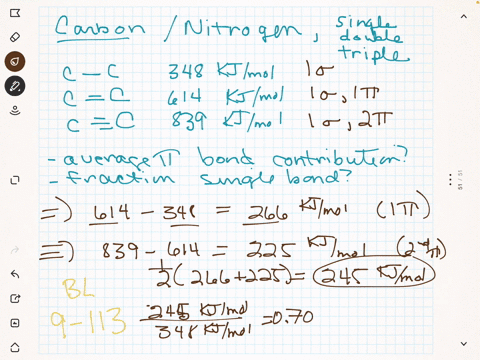 Carbon / Nitrogen, single
double
triple
C — C 348 KJ/mol 1σ
C = C 614 KJ/mol 1σ, 1π
C ≡ C 839 KJ/mol 1σ, 2π
- average π bond contribution?
- fraction single bond?
=) 614 - 348 = 266 KJ/mol (1π)
=) 839 - 614 = 225 KJ/mol (2nd π)
1/2 (266 + 225) = 245 KJ/mol
BL
9-113 245 KJ/mol / 348 KJ/mol = 0.70